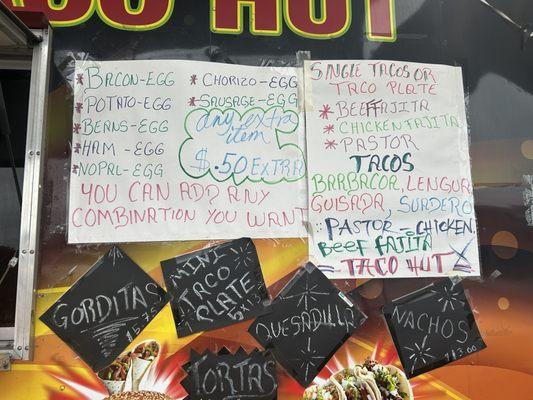 HUT
BACON-EGG
POTATO-EGG
BEANS-EGG
HAM-EGG
NOPAL-EGG
CHORIZO-EGG
SAUSAGE-EGG
any extra
item
$.50 EXTRA
YOU CAN ADD ANY
COMBINATION YOU WANT
SINGLE TACOS OR
TACO PLATE
BEEF FAJITA
CHICKEN FAJITA
PASTOR
TACOS
BARBACOA, LENGUA
GUISADA, SUADERO
PASTOR - CHICKEN,
BEEF FAJITA
TACO HUT
GORDITAS
MINI
TACO
PLATE
QUESADILLA
NACHOS
$3.00
TORTAS